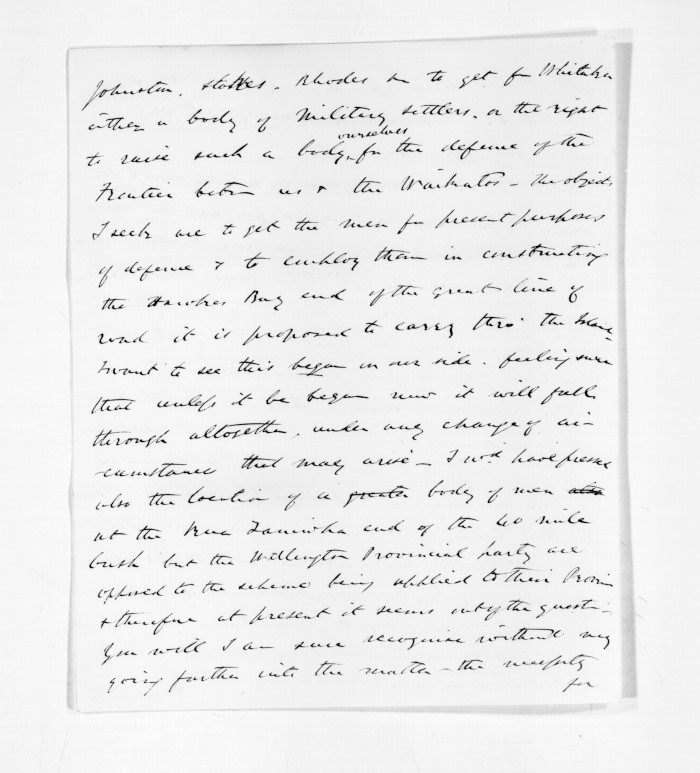 Johnston, Stokes, Rhodes &c to get fm Whitaker
either a body of Military settlers or the right
to raise such a body ourselves for the defence of the
Frontier betwn us & the Waikatos - the objects
I seek are to get the men for present purposes
of defence & to employ them in constructing
the Hawkes Bay end of the great line of
road it is proposed to carry thro' the Island
I want to see this began on our side. feeling sure
that unless it be began now it will fall
through altogether, under any change of cir-
-cumstances that may arise - I wd. have pressed
also the location of a greater body of men also
at the Rua Taniwha end of the 40 mile
bush but the Wellington Provincial party are
opposed to the scheme being applied to their Province
& therefore at present it seems out of the question -
You will I am sure recognise without my
going further into the matter - the necessity
for